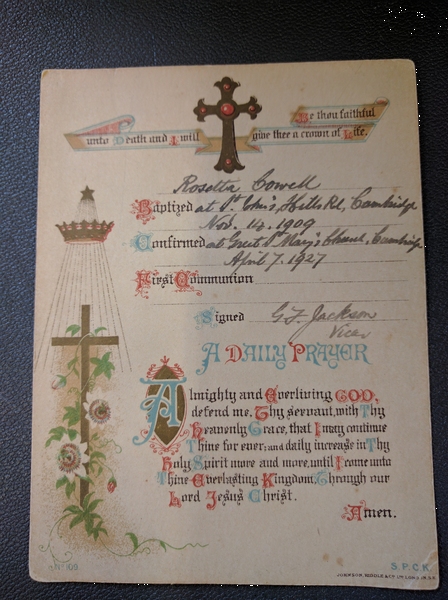 Be thou faithful
unto Death and I will give thee a crown of Life.
Rosetta Cowell
Baptized at St Jhn's, Hills Rd, Cambridge
Nov. 14. 1909
Confirmed at Great St Mary's Church, Cambridge
April 7. 1927
First Communion
Signed G. F. Jackson
Vicar
A DAILY PRAYER
Almighty and Everliving GOD,
defend me, Thy servant, with Thy
Heavenly Grace, that I may continue
Thine for ever; and daily increase in Thy
Holy Spirit more and more, until I come unto
Thine Everlasting Kingdom, Through our
Lord Jesus Christ.
Amen.
No 109
S.P.C.K.
JOHNSON, RIDDLE & CO. LTD. LONDON, S.E.